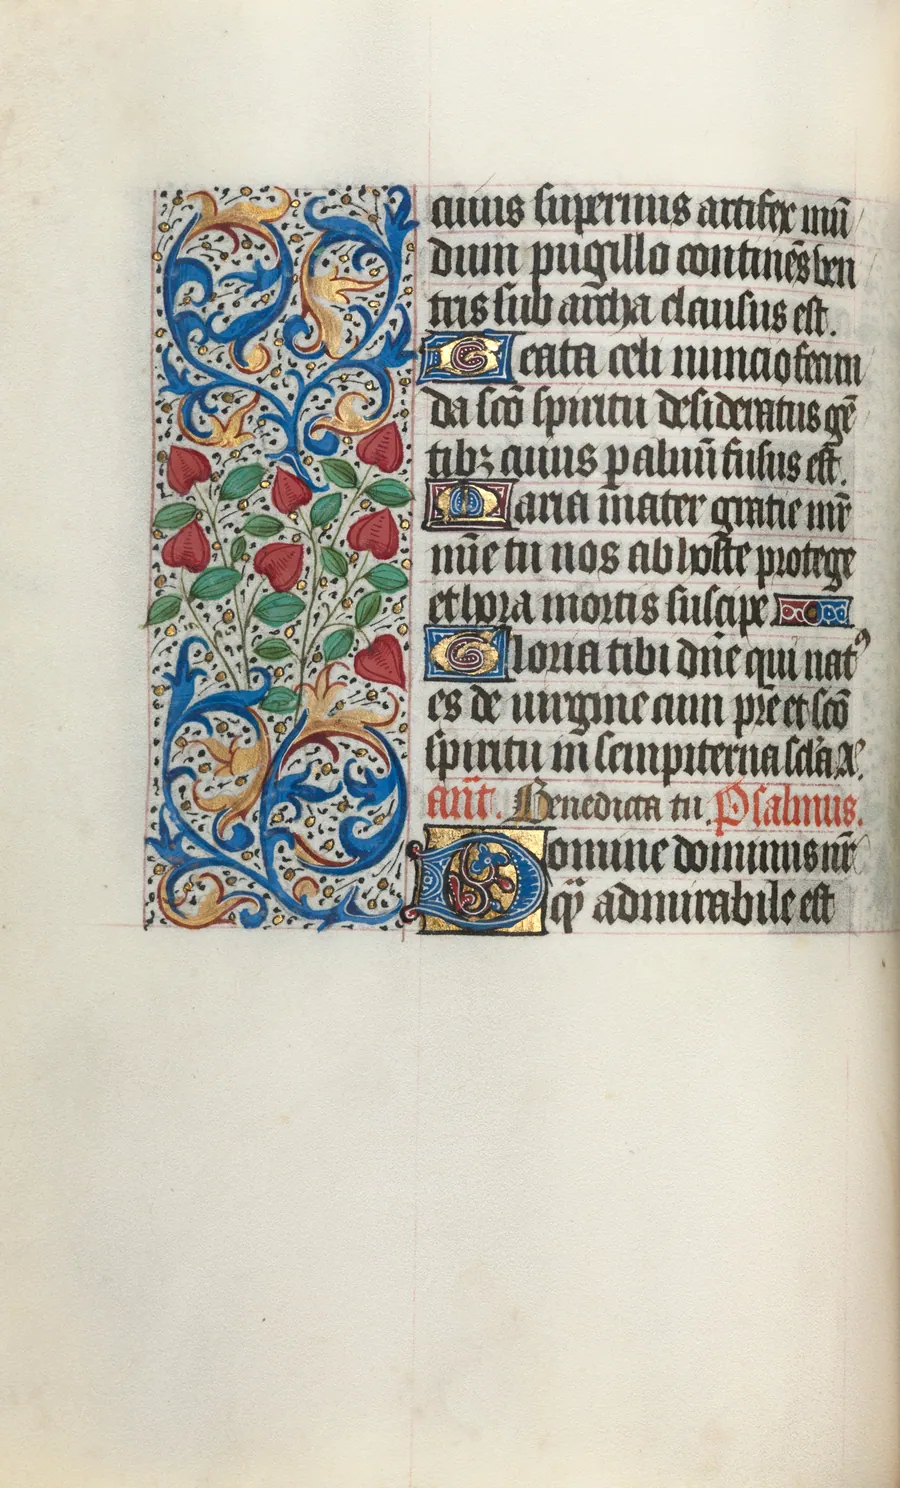 cuius supernus artifex mū
dum pugillo continēs ven
tris sub archa clausus est.
Beata celi nuncio fecun
da sc̄o spiritu desideratus gē
tibꝫ cuius p alvū fusus est.
Maria mater gratie mr̄
mīe tu nos ab hoste protege
et hora mortis suscipe
Gloria tibi dn̄e qui natꝰ
es de virgine cum pr̄e et sc̄o
spiritu in sempiterna sc̄la A.
añt. Benedicta tu. Psalmus.
Domine dominus nr̄
qꝫ admirabile est